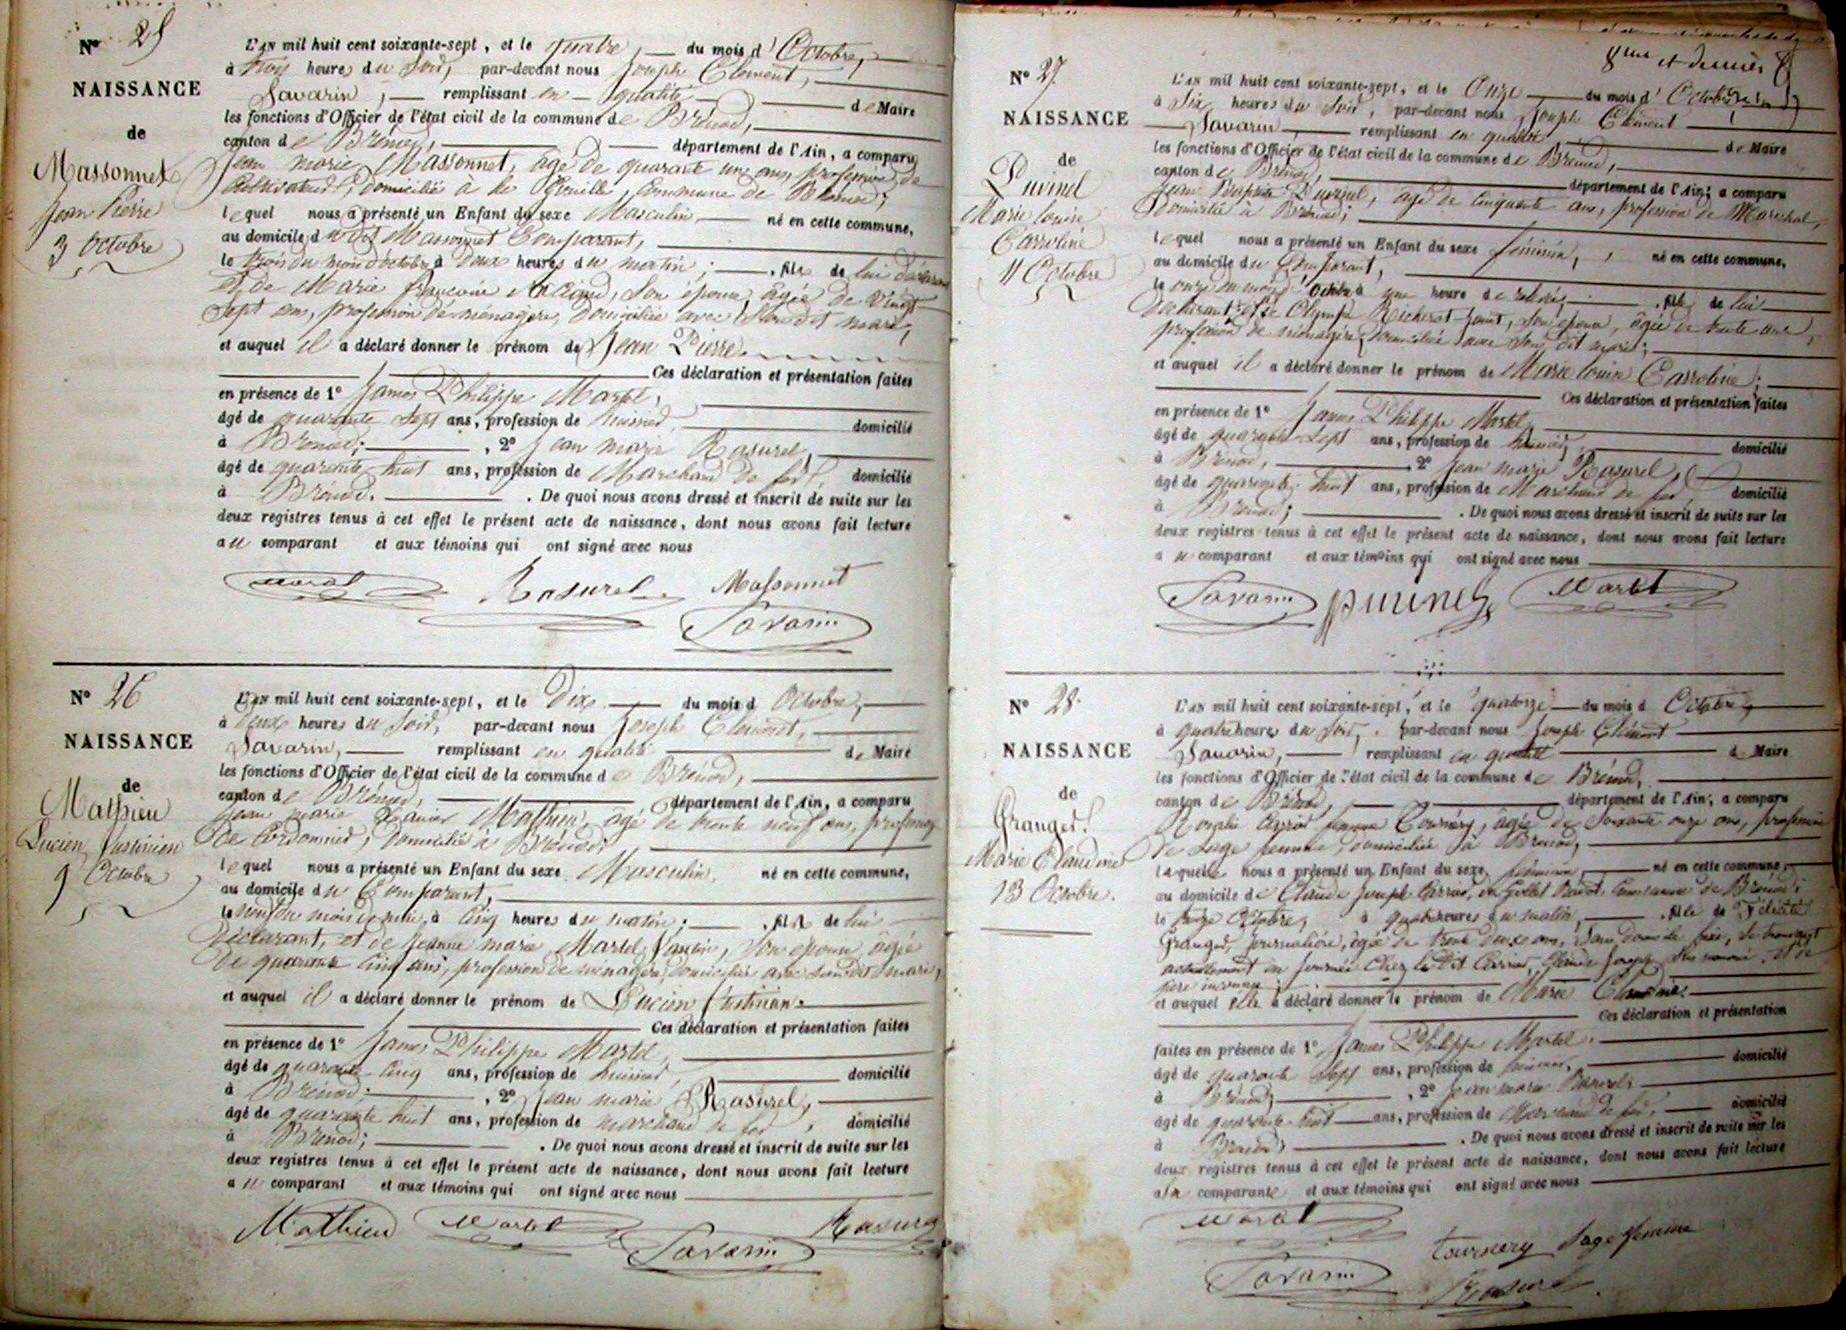 N° 25
NAISSANCE
de
Massonnet
Jean Pierre
3 Octobre
L'AN mil huit cent soixante-sept, et le quatre du mois d'Octobre,
à trois heures du soir, par-devant nous Joseph Clément,
Savarin, remplissant en qualité de Maire
les fonctions d'Officier de l'état civil de la commune de Brénod,
canton de Brénod, département de l'Ain, a comparu
Jean marie Massonnet, âgé de quarante un ans, profession de
Cultivateur, domicilié à la commune de Brénod,
lequel nous a présenté un Enfant du sexe Masculin né en cette commune,
au domicile du dit Massonnet Comparant,
le trois du mois d'octobre à Deux heures du matin; , fils de lui déclarant
et de Marie françoise son épouse, âgée de vingt
sept ans, profession de ménagère, domiciliée avec son dit mari,
et auquel il a déclaré donner le prénom de Jean Pierre.
Ces déclaration et présentation faites
en présence de 1° James Philippe Martel,
âgé de quarante sept ans, profession de huissier, domicilié
à Brénod; , 2° Jean marie Rasurel,
âgé de quarante huit ans, profession de Marchand de fer, domicilié
à Brénod. . De quoi nous avons dressé et inscrit de suite sur les
deux registres tenus à cet effet le présent acte de naissance, dont nous avons fait lecture
au comparant et aux témoins qui ont signé avec nous
Martel Rasurel Massonnet
Savarin
N° 26
NAISSANCE
de
Mathieu
Lucien Justinien
9 Octobre
L'AN mil huit cent soixante-sept, et le Dix du mois d Octobre,
à deux heures du soir, par-devant nous Joseph Clément,
Savarin, remplissant en qualité de Maire
les fonctions d'Officier de l'état civil de la commune de Brénod,
canton de Brénod, département de l'Ain, a comparu
Jean marie Mathieu, âgé de trente neuf ans, profession
de Cordonnier, domicilié à Brénod;
lequel nous a présenté un Enfant du sexe Masculin, né en cette commune,
au domicile du Comparant,
le neuf du mois à Cinq heures du matin; , fils de lui
Déclarant, et de Jeanne marie Martel son épouse âgée
de quarante cinq ans, profession de ménagère, domiciliée avec son dit mari,
et auquel il a déclaré donner le prénom de Lucien Justinien.
Ces déclaration et présentation faites
en présence de 1° James Philippe Martel,
âgé de quarante cinq ans, profession de huissier, domicilié
à Brénod; , 2° Jean marie Rasurel,
âgé de quarante huit ans, profession de marchand de fer, domicilié
à Brénod; . De quoi nous avons dressé et inscrit de suite sur les
deux registres tenus à cet effet le présent acte de naissance, dont nous avons fait lecture
au comparant et aux témoins qui ont signé avec nous
Mathieu Martel Rasurel
Savarin
8me et dernier
N° 27
NAISSANCE
de
Puvinel
Marie louise
Carroline
11 Octobre
L'AN mil huit cent soixante-sept, et le Onze du mois d'Octobre
à Six heures du soir, par-devant nous Joseph Clément
Savarin, remplissant en qualité de Maire
les fonctions d'Officier de l'état civil de la commune de Brénod,
canton de Brénod, département de l'Ain, a comparu
Jean Puvinel, âgé de Cinquante ans, profession de Maréchal,
Domicilié à Brénod;
lequel nous a présenté un Enfant du sexe féminin, né en cette commune,
au domicile du Comparant,
le onze du mois Octobre à une heure de relevée, , fille de lui
Déclarant et de Olympe Richerot son épouse, âgée de trente ans,
profession de ménagère, domiciliée avec son dit mari;
et auquel il a déclaré donner le prénom de Marie louise Carroline;
Ces déclaration et présentation faites
en présence de 1° James Philippe Martel,
âgé de quarante-sept ans, profession de huissier, domicilié
à Brénod, , 2° Jean marie Rasurel,
âgé de quarante huit ans, profession de Marchand de fer, domicilié
à Brénod; . De quoi nous avons dressé et inscrit de suite sur les
deux registres tenus à cet effet le présent acte de naissance, dont nous avons fait lecture
au comparant et aux témoins qui ont signé avec nous
Savarin puvinel Martel
N° 28.
NAISSANCE
de
Granger
Marie Claudine
13 Octobre.
L'AN mil huit cent soixante-sept, et le quatorze du mois d Octobre,
à quatre heures du soir, par-devant nous Joseph Clément
Savarin, remplissant en qualité de Maire
les fonctions d'Officier de l'état civil de la commune de Brénod,
canton de Brénod, département de l'Ain, a comparu
Rosalie femme Tournery, âgée de Soixante onze ans, profession
de Sage femme, domiciliée à Brénod,
laquelle nous a présenté un Enfant du sexe féminin, né en cette commune,
au domicile de Claude Joseph Carrier, Commune de Brénod;
le treize Octobre, à quatre heures du matin, , fille de Félicité
Granger, journalière, âgée de trente deux ans, Sans domicile fixe, se trouvant
actuellement en journée Chez le dit Carrier, Claude Joseph et de
père inconnu
et auquel elle a déclaré donner le prénom de Marie Claudine.
Ces déclaration et présentation
faites en présence de 1° James Philippe Martel.
âgé de quarante sept ans, profession de huissier, domicilié
à Brénod; , 2° Jean marie Rasurel,
âgé de quarante huit ans, profession de Marchand de fer, domicilié
à Brénod; . De quoi nous avons dressé et inscrit de suite sur les
deux registres tenus à cet effet le présent acte de naissance, dont nous avons fait lecture
a la comparante et aux témoins qui ont signé avec nous
Martel
Tournery Sage femme
Savarin Rasurel